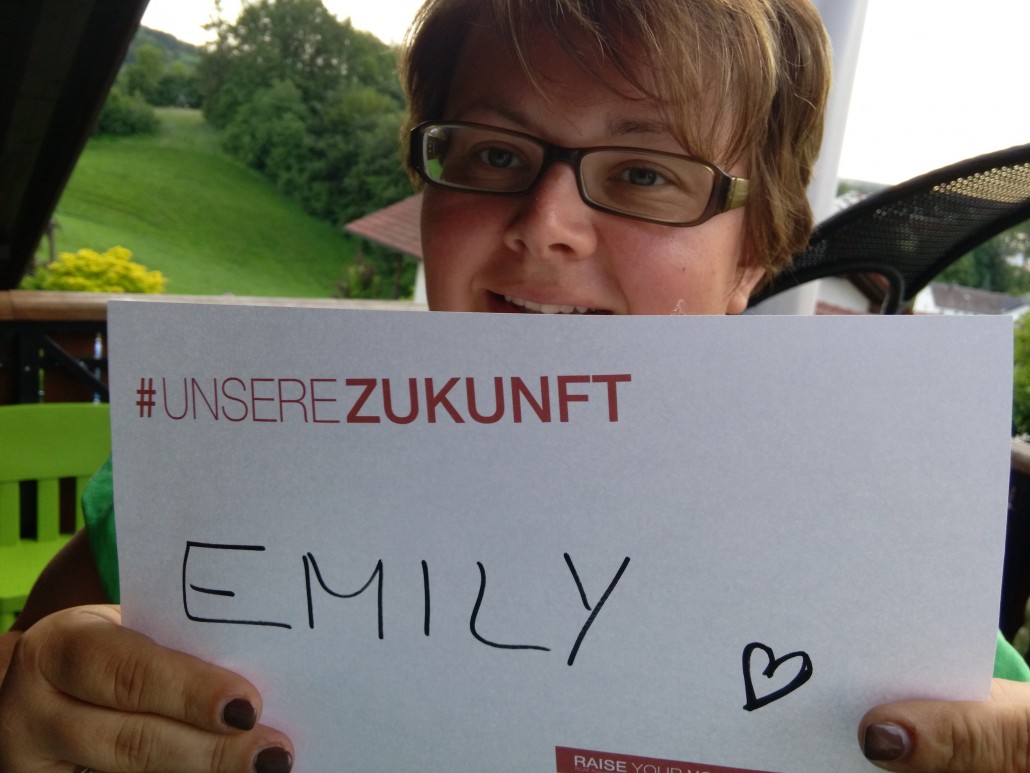 #UNSEREZUKUNFT
EMILY
RAISE YOUR